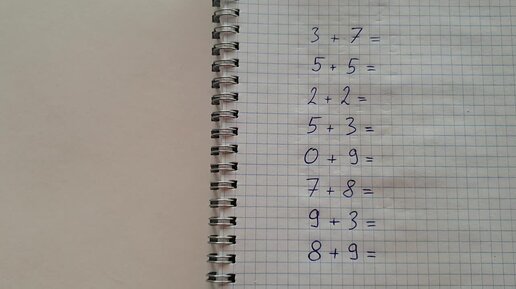 3 + 7 =
5 + 5 =
2 + 2 =
5 + 3 =
0 + 9 =
7 + 8 =
9 + 3 =
8 + 9 =